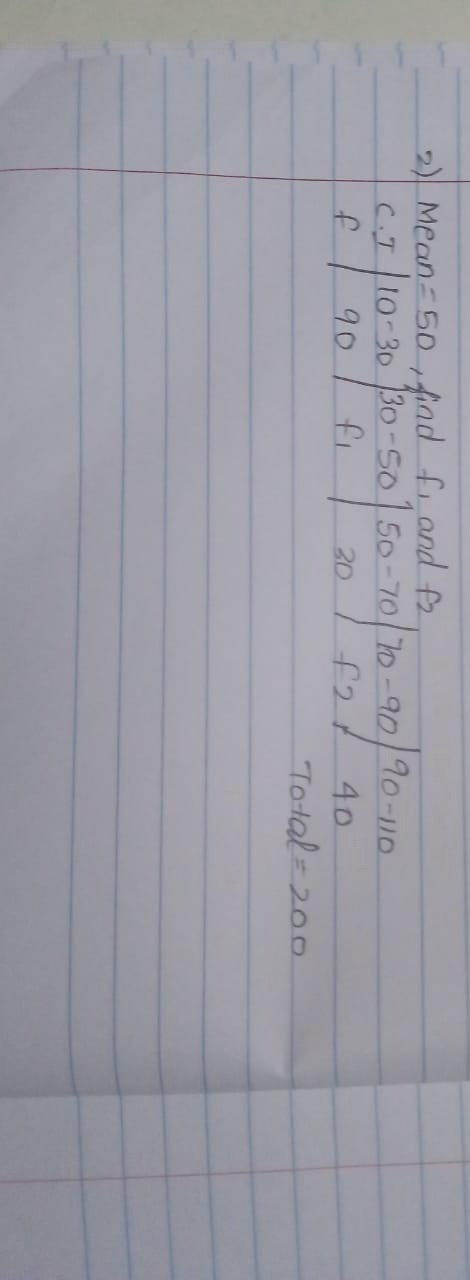 2) Mean = 50, find f1 and f2
C.I | 10-30 | 30-50 | 50-70 | 70-90 | 90-110
f | 90 | f1 | 30 | f2 | 40
Total = 200